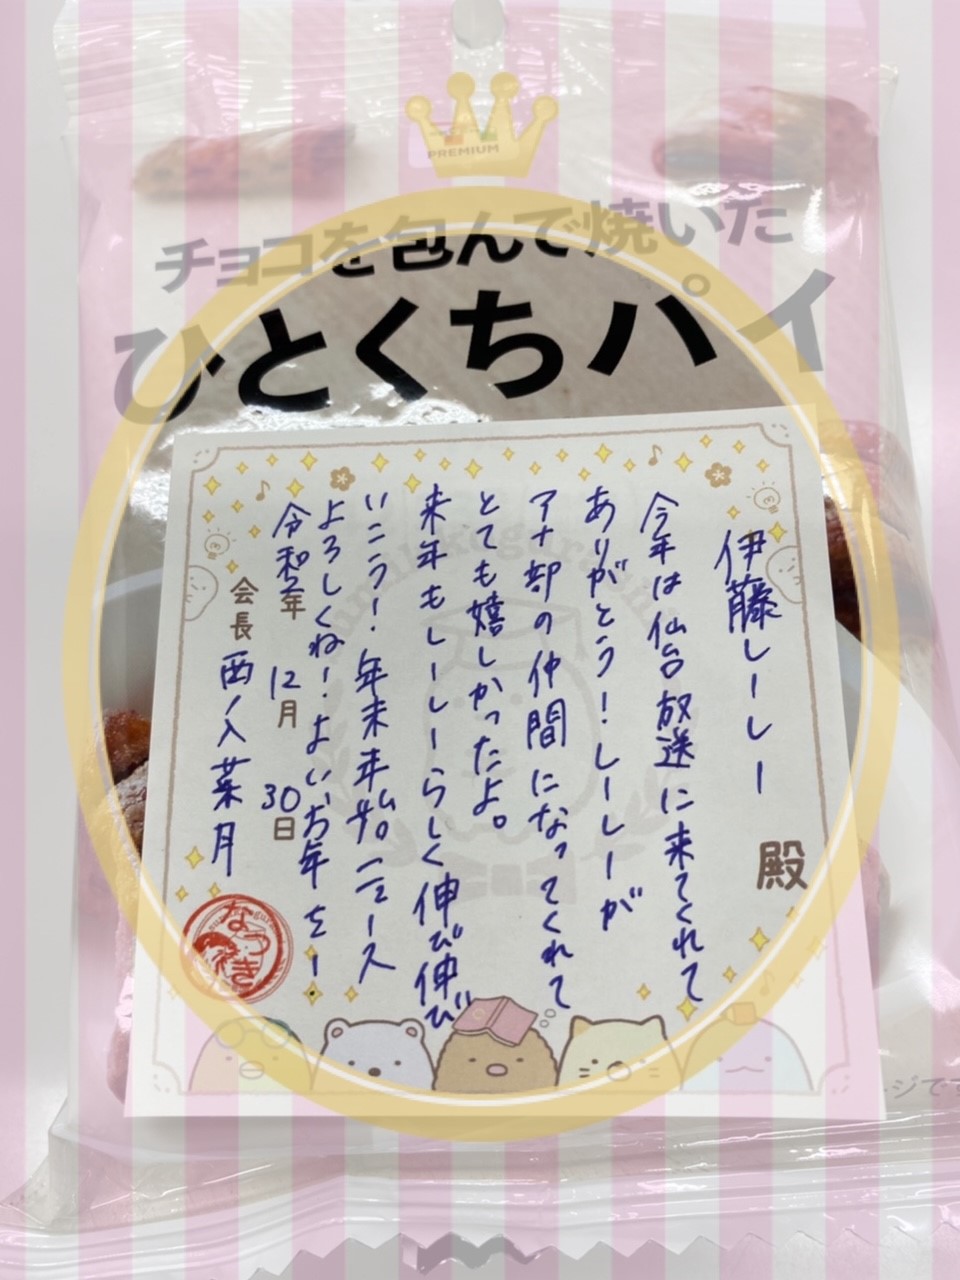 PREMIUM
チョコを包んで焼いた
ひとくちパイ
伊藤しーしー
殿
今年は仙台放送に来てくれて
ありがとう！しーしーが
アナ部の仲間になってくれて
とても嬉しかったよ。
来年もしーしーらしく伸び伸び
いこう！年末年始ニュース
よろしくね！よいお年を！
令和 年 12月 30日
会長 西ノ入菜月
なつき